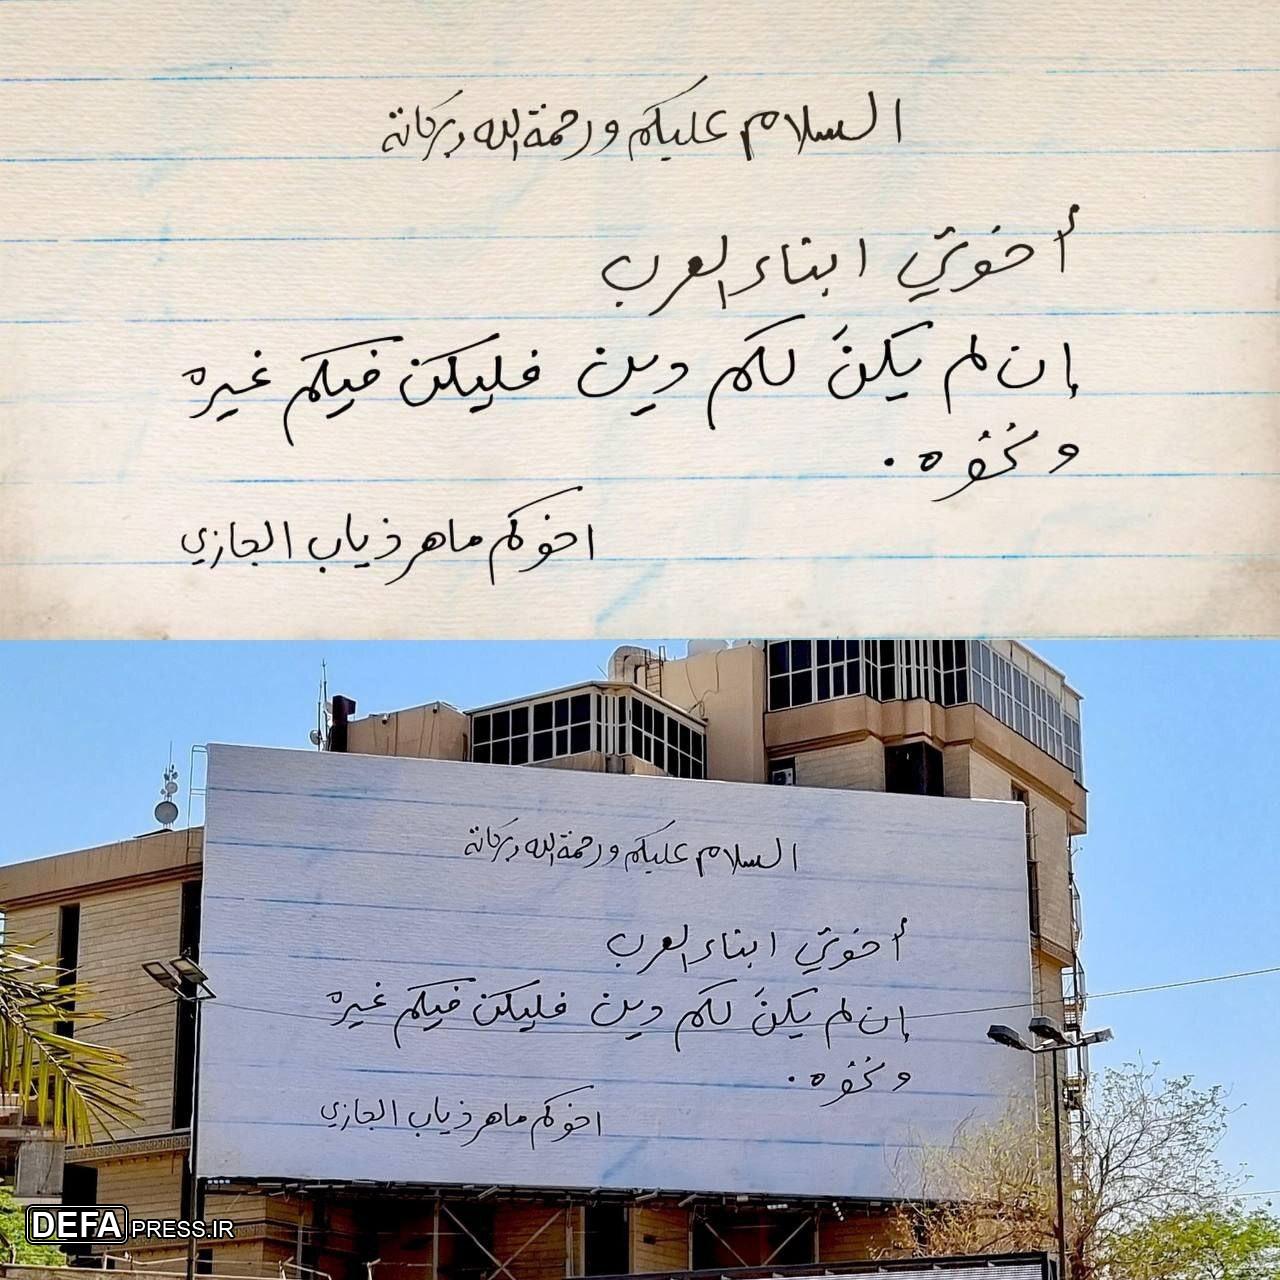 السلام عليكم ورحمة الله وبركاته
أخوتي ابناء العرب
إن لم يكنَ لكم دين فليكن فيكم غيره
ونخُوُه.
اخوكم ماهر ذياب الجازي
السلام عليكم ورحمة الله وبركاته
أخوتي ابناء العرب
إن لم يكنَ لكم دين فليكن فيكم غيره
ونخُوُه.
اخوكم ماهر ذياب الجازي
DEFA PRESS.IR